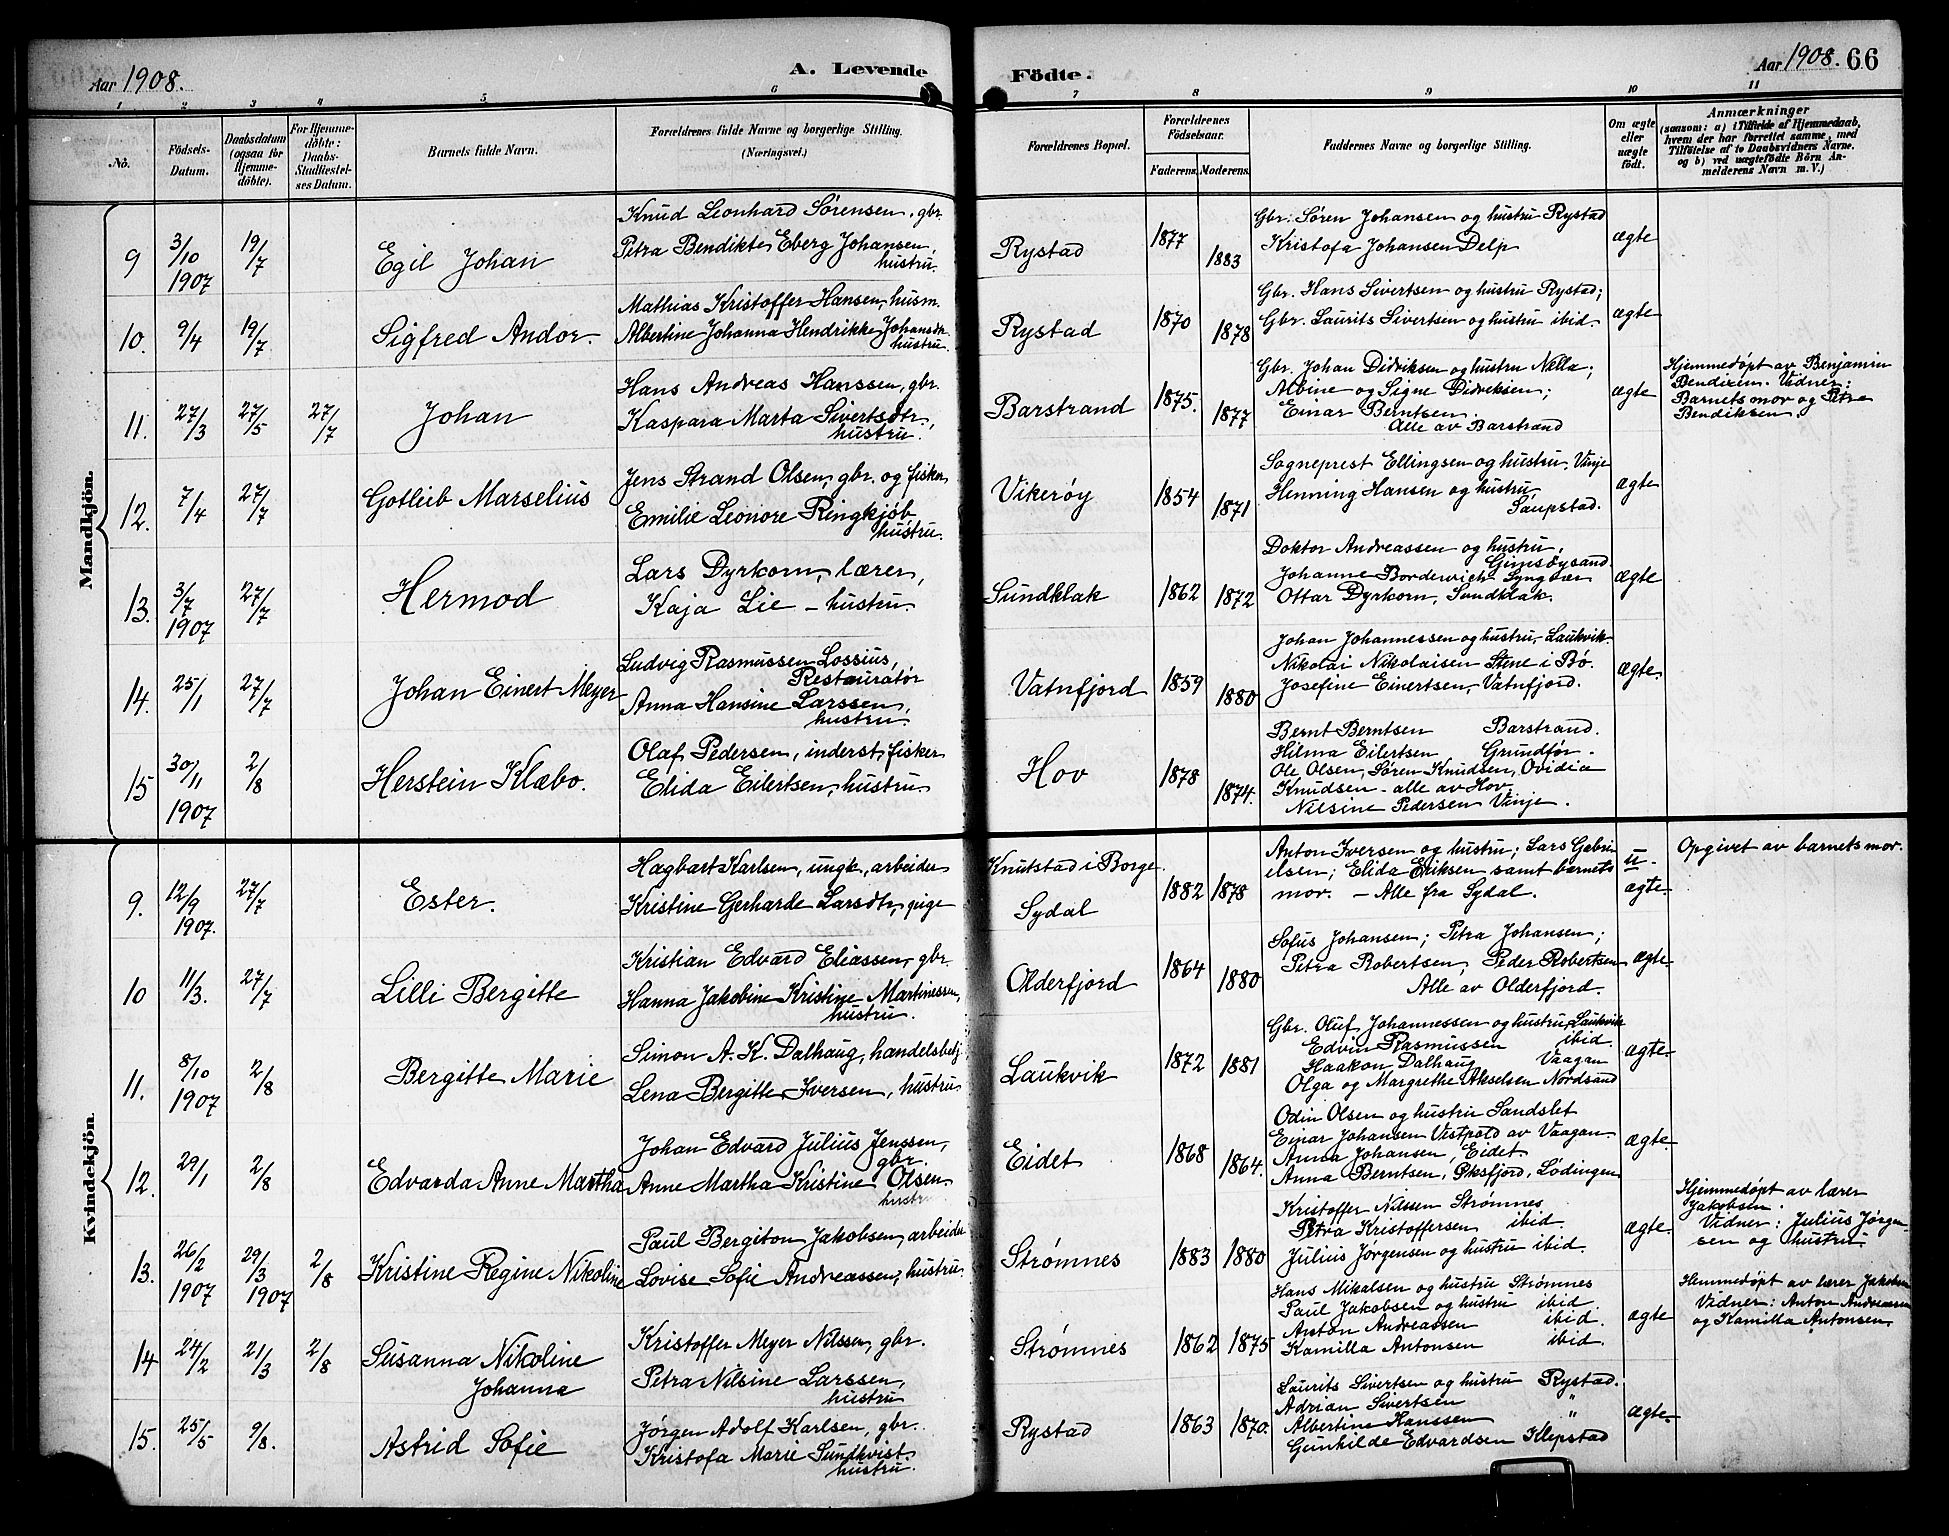 Aar 1908.
A. Levende Födte.
Aar 1908. 66
1 2 3 4 5 6 7 8 9 10 11
No.
Födsels-Datum.
Daabsdatum (ogsaa for Hjemmedöbte).
For Hjemmedöbte: Daabs-Stadfæstelses Datum.
Barnets fulde Navn.
Forældrenes fulde Navne og borgerlige Stilling.
(Næringsvei.)
Forældrenes Bopæl.
Forældrenes Födselsaar.
Faderens. Moderens.
Faddernes Navne og borgerlige Stilling.
Om ægte eller uægte födt.
Anmærkninger
(saasom: a) i Tilfælde af Hjemmedaab, hvem der har forrettet samme, med Tilföielse af to Daabsvidners Navne. og b) ved uægtefödte Börn Anmelderens Navn m. V.)
Mandkjön.
9 3/10 1907 19/7 Egil Johan
Knud Leonhard Sørensen, gbr.
Petra Bendikte Eberg Johansen, hustru.
Rystad 1877 1883
Gbr: Søren Johansen og hustru Rystad
Kristofa Johansen Delp
ægte
10. 9/4 19/7 Sigfred Andor.
Mathias Kristoffer Hansen, husm.
Albertine Johanna Hendrikke Johansdtr. hustru.
Rystad 1870 1878
Gbr. Hans Sivertsen og hustru Rystad;
Gbr. Laurits Sivertsen og hustru ibid.
ægte
11. 27/3 27/5 27/7 Johan
Hans Andreas Hanssen, gbr.
Kaspara Marta Sivertsdtr, hustru.
Barstrand 1875. 1877
Gbr. Johan Didriksen og hustru Nella;
Albine og Signe Didriksen;
Einar Berntsen.
Alle av Barstrand
ægte
Hjemmedøpt av Benjamin
Bendixen. Vidner:
Barnets mor og Petra
Bendiksen.
12. 7/4 27/7 Gotlieb Marselius
Jens Strand Olsen, gbr. og fisker
Emilie Leonore Ringkjøb hustru.
Vikerøy 1854 1871
Sogneprest Ellingsen og hustru, Vinje
Henning Hansen og hustru
Saupstad.
ægte
13. 3/7 1907 27/7 Hermod
Lars Dyrkorn, lærer,
Kaja Lie - hustru
Sundklak 1862 1872
Doktor Andreassen og hustru,
Gimsøysand
Johanne Borderwich
Ottar Dyrkorn, Sundklak.
ægte
14. 25/1 27/7 Johan Einert Meyer
Ludvig Rasmussen Lossius,
Restauratør
Anna Hansine Larssen, hustru.
Vatnfjord 1859 1880
Johan Johannessen og hustru, Laukvik
Nikolai Nikolaisen Stene i Bø.
Josefine Einertsen, Vatnfjord.
ægte.
15 30/11 1907 2/8 Herstein Klæbo.
Olaf Pedersen, inderst, fisker
Elida Eilertsen, hustru
Hov 1878 1874.
Bernt Berntsen Barstrand.
Hilma Eilertsen Grundfør.
Ole Olsen, Søren Knudsen, Ovidia
Knudsen - alle av Hov.
Nilsine Pedersen Vinje.
Kvindekjön.
9. 12/9 1907. 27/7 Ester.
Hagbart Karlsen, ungk, arbeider
Kristine Gerharde Larsdtr, pige
Knutstad i Borge
Sydal 1882 1878
Anton Iversen og hustru; Lars Gabri
elsen; Elida Eriksen samt barnets
mor. - Alle fra Sydal.
u-ægte
Opgivet av barnets mor.
10 11/3. 27/7 Lilli Bergitte
Kristian Edvard Eliassen, gbr.
Hanna Jakobine Kristine Martinessen, hustru.
Olderfjord 1864 1880
Sofus Johansen; Petra Johansen;
Petra Robertsen, Peder Robertsen
Alle av Olderfjord.
ægte
11. 8/10 1907 2/8 Bergitte Marie
Simon A. K. Dalhaug, handelsbetj.
Lena Bergitte Iversen, hustru
Laukvik 1872 1881
Gbr. Oluf Johannessen og hustru, Laukvik
Edvin Rasmussen ibid.
Haakon Dalhaug Vaagan
Olga og Margrethe Akselsen Nordsand
ægte
12. 29/1 2/8 Edvarda Anne Martha
Johan Edvard Julius Jenssen, gbr.
Anne Martha Kristine Olsen hustru
Eidet 1868 1864.
Odin Olsen og hustru Sandslet
Einar Johansen Vestpold av Vaagan.
Anna Johansen, Eidet
Anna Berntsen, Øksfjord, Lødingen
ægte
13. 26/2 1907 29/3 1907 2/8 Kristine Regine Nikoline
Paul Bergiton Jakobsen, arbeider
Lovise Sofie Andreassen, hustru
Strømnes 1883 1880
Kristoffer Nilssen Strømnes
Petra Kristoffersen ibid.
Julius Jørgensen og hustru ibid.
ægte
Hjemmedøpt av lærer
Jakobsen.
Vidner: Julius Jørgen-
sen og hustru
14 24/2 21/3 2/8 Susanna Nikoline
Johanna
Kristoffer Meyer Nilssen, gbr.
Petra Nilsine Larssen, hustru
Strømnes 1862 1875
Hans Mikalsen og hustru Strømnes
Paul Jakobsen og hustru ibid.
Anton Andreassen ibid.
Kamilla Antonsen ibid.
ægte
Hemmedøpt av lærer Jakobsen
Vidner: Anton Andreassen
og Kamilla Antonsen.
15. 25/5 9/8. Astrid Sofie
Jørgen Adolf Karlsen, gbr.
Kristofa Marie Sundkvist. hustru.
Rystad 1863 1870.
Laurits Sivertsen og hustru Rystad.
Adrian Sivertsen "
Albertine Hanssen "
Gunhilde Edvardsen Klepstad
ægte